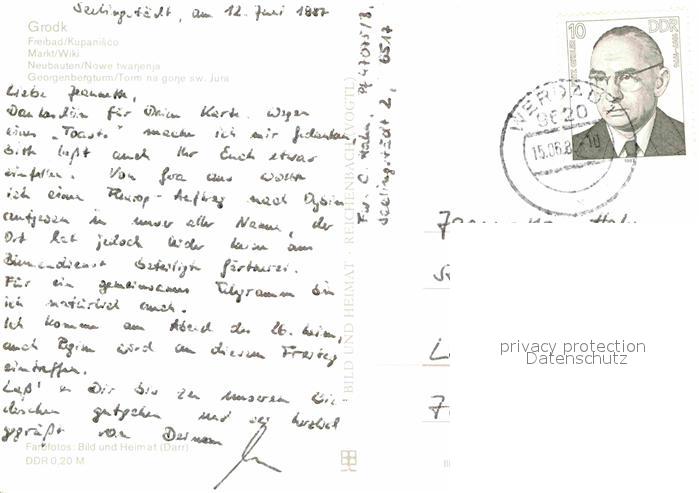 Seelingstädt, am 12. Juni 1987
Grodk
Freibad/Kupanišćo
Markt/Wiki
Neubauten/Nowe twarjenja
Georgenbergturm/Torm na gorje sw. Jura
Liebe Jeannette,
Dankeschön für Deine Karte. Wegen
eines „Toasts" mache ich mir Gedanken,
bitte laßt auch Ihr Euch etwas
einfallen. Von Gera aus wollte
ich einen Fleurop-Auftrag nach Oybin
aufgeben in unser aller Namen, der
Ort hat jedoch leider keine am
Blumendienst beteiligte Gärtnerei.
Für ein gemeinsames Telegramm bin
ich natürlich auch.
Ich komme am Abend des 26. heim,
auch Regina wird an diesem Freitag
eintreffen.
Laß' es Dir bis zu unserem Wie-
dersehen gutgehen und sei herzlich
gegrüßt von Deinem
Farbfotos: Bild und Heimat (Darr)
DDR 0,20 M
BILD UND HEIMAT REICHENBACH (VOGTL)
Fw. C. Hahn, PF 47075/B,
Seelingstädt 2, 6517
10 DDR
WERDAU
9620
15.06.8 -10
privacy protection
Datenschutz